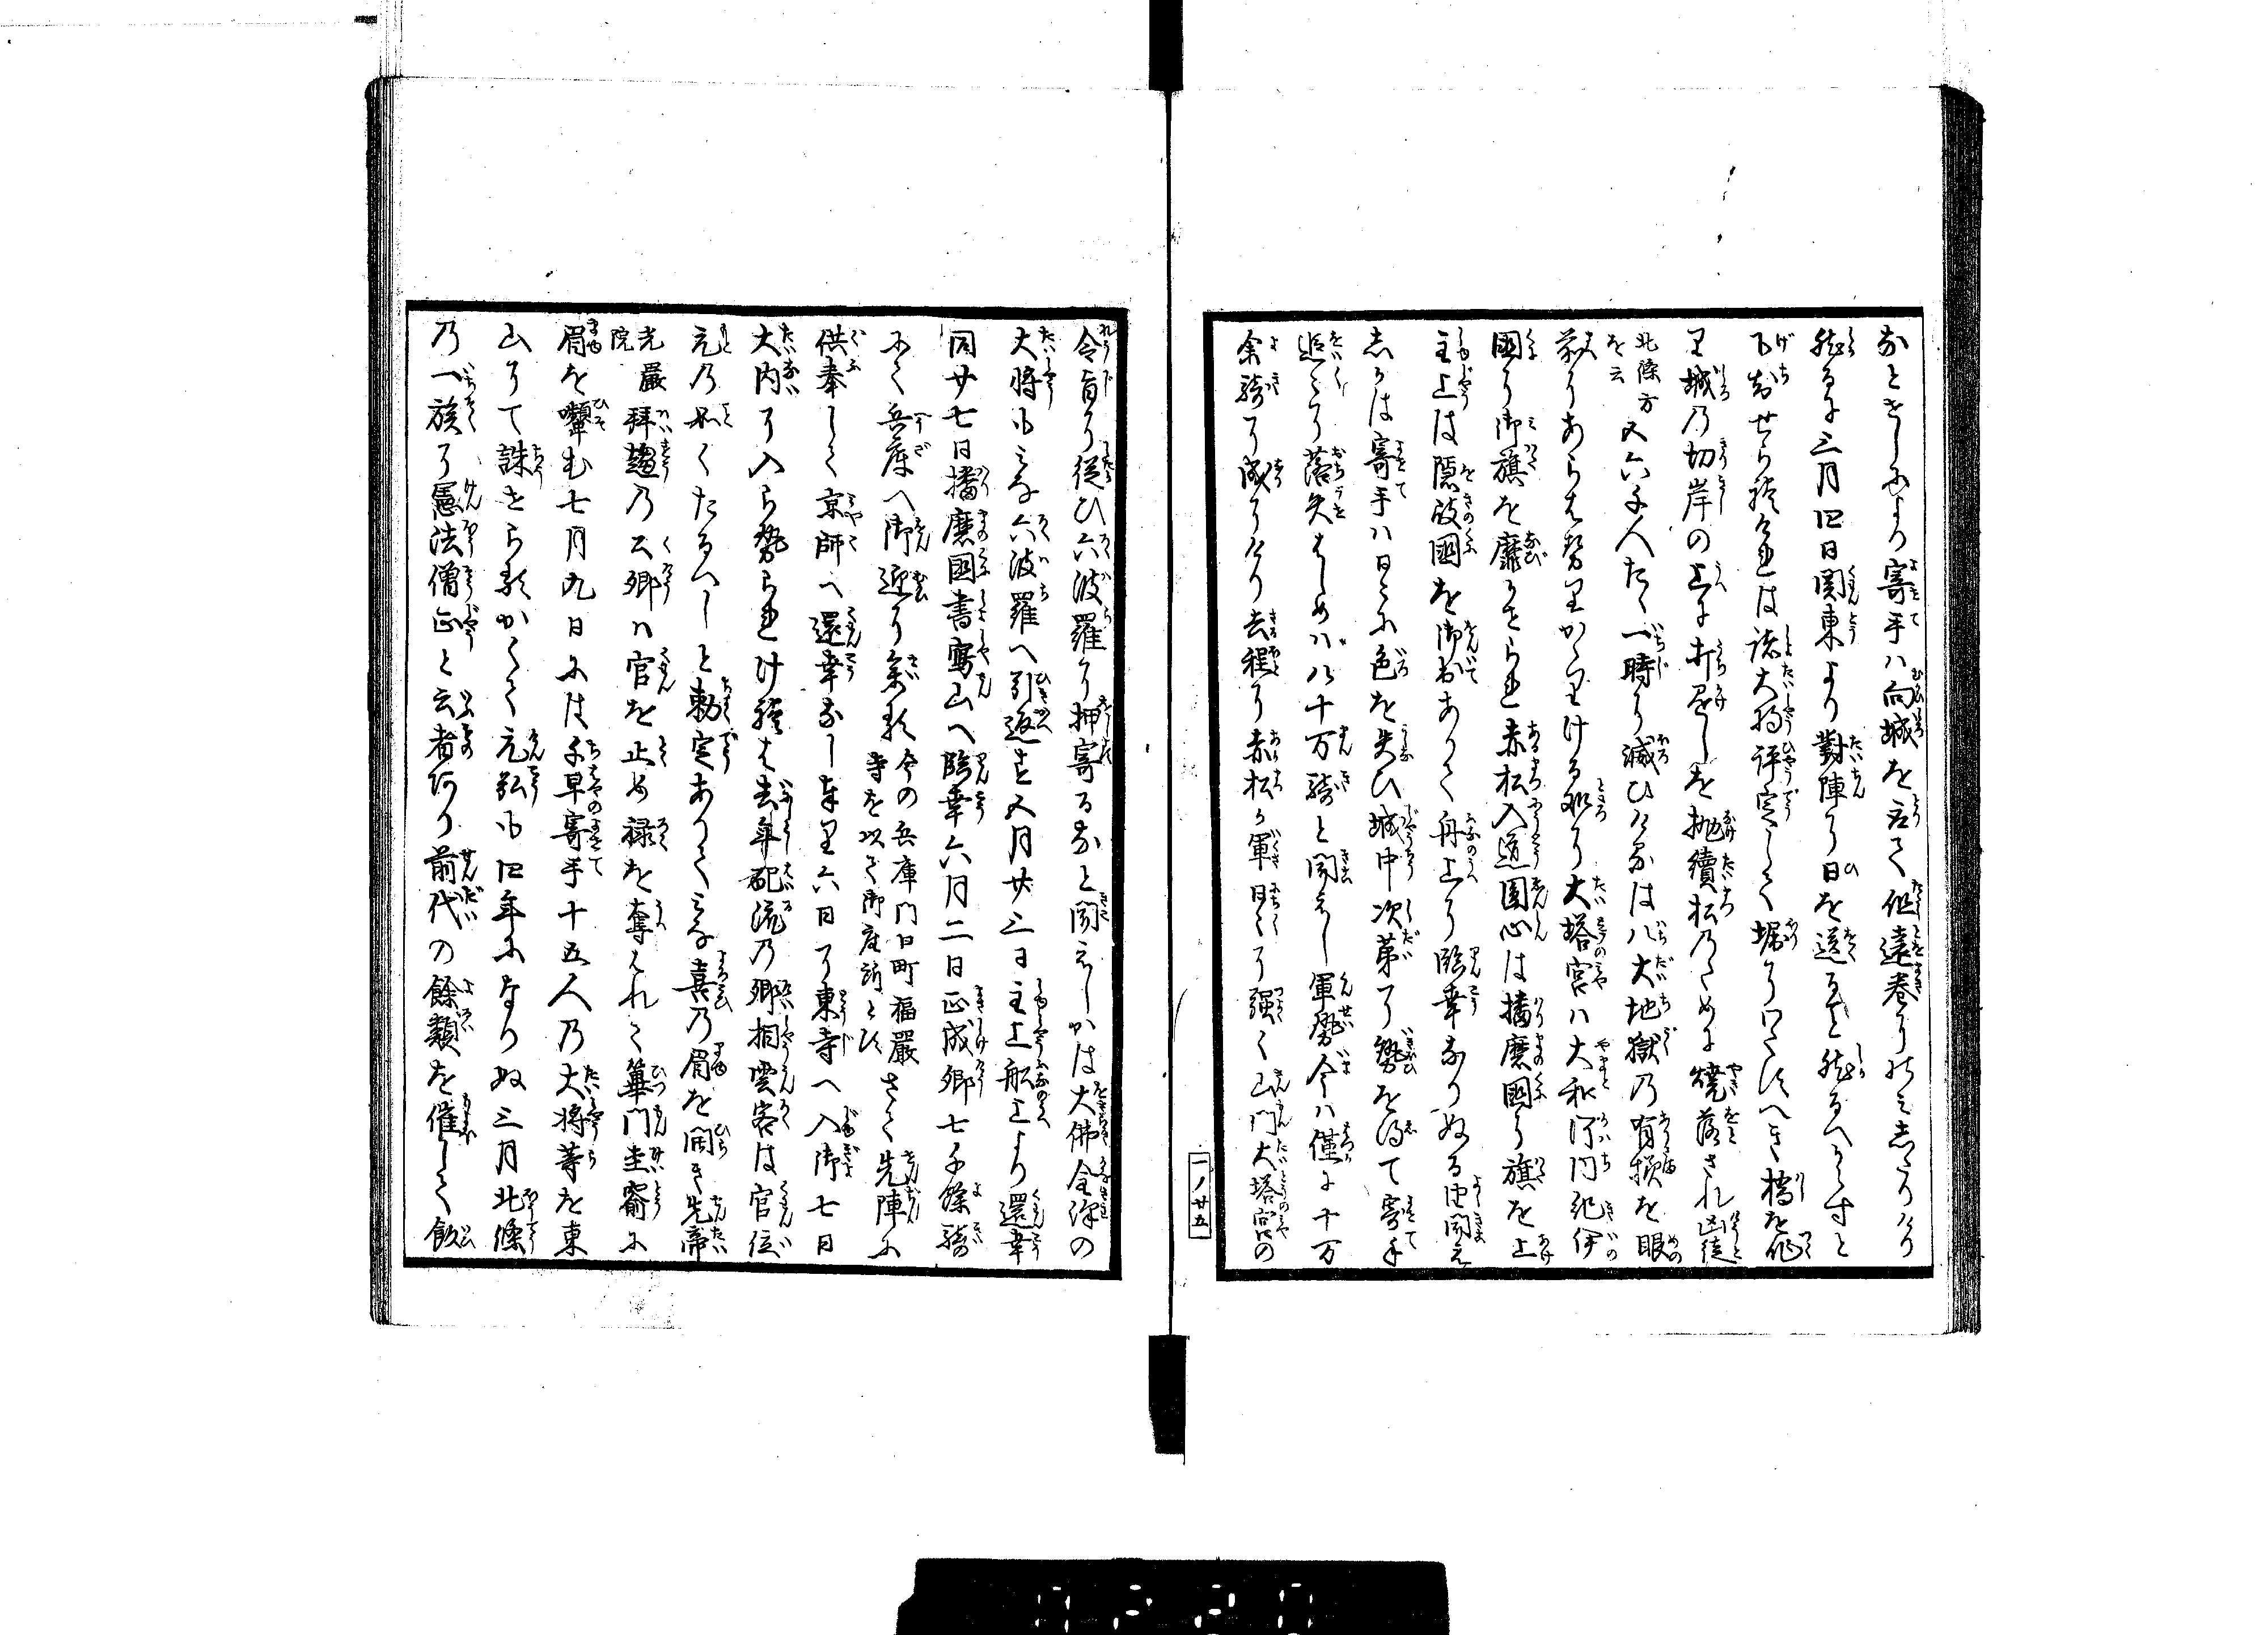 なとせしにより寄手ハ向城を取て但遠巻にのミしたりけり
然るに三月四日関東より対陣に日を送る事然るへからすと
下知せられけれは諸大将評定して堀にわたすへき橋を作
り城の切岸の上に打懸しを抛続松のために焼落され凶徒
北條方を云 五六千人たゝ一時に滅ひけるは八大地獄の有様を眼
前にあらはせりかゝりける処に大塔宮ハ大和河内紀伊
国に御旗を靡かせられ赤松入道円心は播磨国に旗を上
主上は隠岐国を御出ありて舟上に臨幸なりぬる由聞え
しかは寄手ハ日々に色を失ひ城中次第に勢を得て寄手
追々に落失はしめハ八十万騎と聞えし軍勢今ハ僅に十万
余騎に成にけり去程に赤松か軍日々に強く山門大塔宮の
一ノ廿五
令旨に従ひ六波羅に押寄るなと聞えしかは大佛金澤の
大将もミな六波羅へ引返す五月廿三日主上船上より還幸
同廿七日播磨国書写山へ臨幸六月二日正成卿七千餘騎
にて兵庫へ御迎に参る 今の兵庫門口町福嚴寺を以て御座所とす さて先陣に
供奉して京師へ還幸なし奉り六日に東寺へ入御七日
大内に入らせられけれは去年配流の卿相雲客は官位
元の如くたるへしと勅定ありてミな喜の眉を開き先帝
光嚴院 拝趨の公卿ハ官を止め禄を奪はれて蓽門圭竇に
眉を嚬む七月九日には千早寄手十五人の大将等を東
山にて誅せらるかくて元弘も四年になりぬ三月北條
の一族に憲法僧正と云者ありて前代の餘類を催して飯